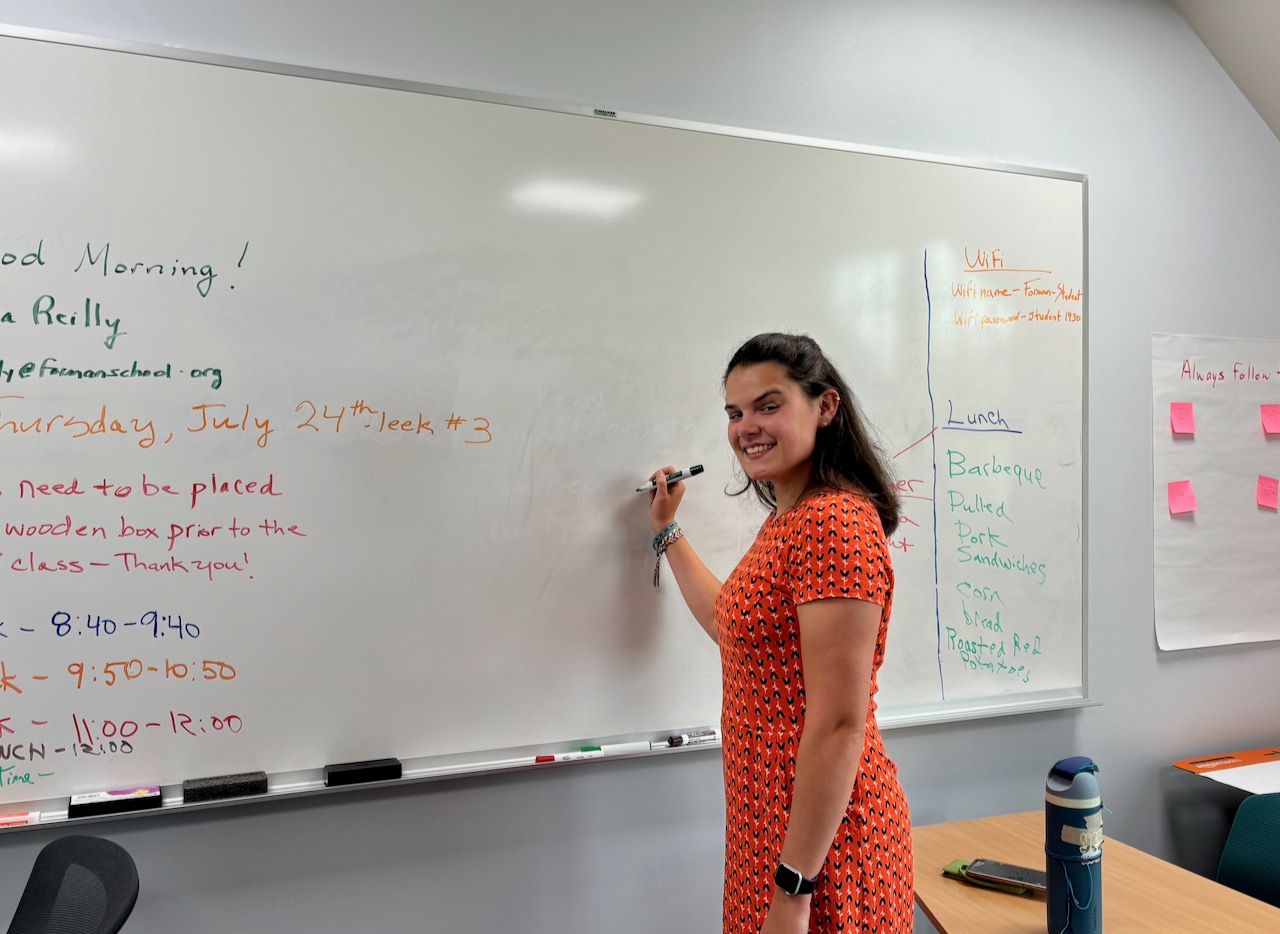 od Morning!
a Reilly
ly@formanschool.org
Thursday, July 24th leek #3
need to be placed
wooden box prior to the
class - Thank you!
k - 8:40-9:40
k - 9:50-10:50
k - 11:00-12:00
NCH - 12:00
Time -
er
WiFi
Wifi name - Forman-Student
Wifi password - Student1930
Lunch
Barbeque
Pulled
Pork
Sandwiches
corn
bread
Roasted Red
Potatoes
Always Follow -